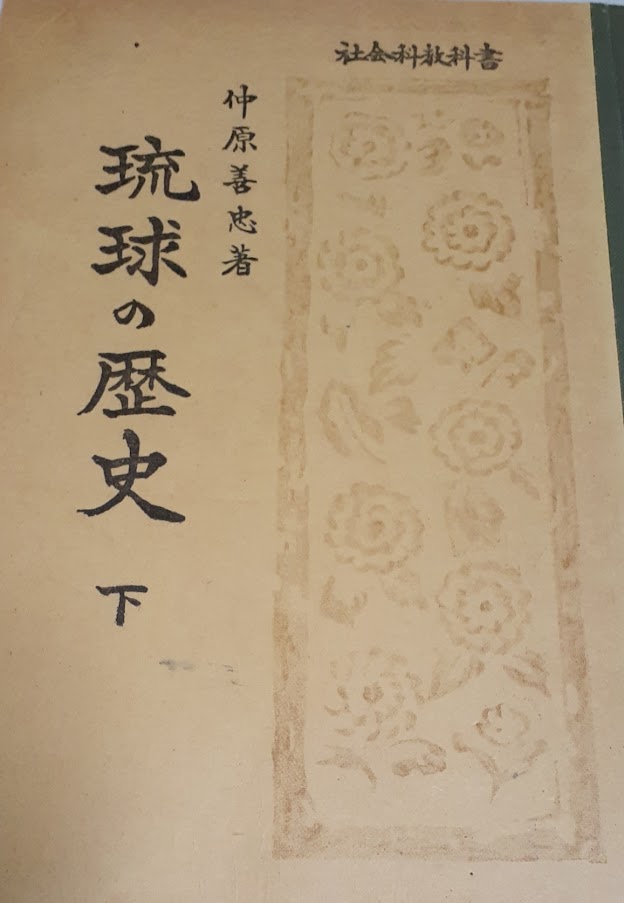 社会科教科書
仲原善忠著
琉球の歴史 下